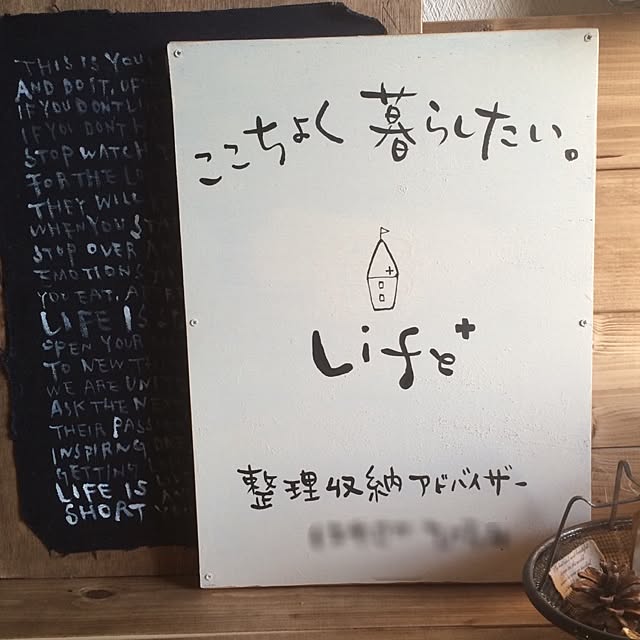 THIS IS YOU
AND DO IT. OF
IF YOU DON'T LI
IF YOU DON'T H
STOP WATCH
FOR THE LO
THEY WILL
WHEN YOU STA
STOP OVER A
EMOTIONS
YOU EAT.
LIFE IS
OPEN YOUR
TO NEW TH
WE ARE UNIT
ASK THE NEX
THEIR PASS
INSPIRING DRE
GETTING
LIFE IS
SHORT
ここちよく 暮らしたい。
Life+
整理収納アドバイザー